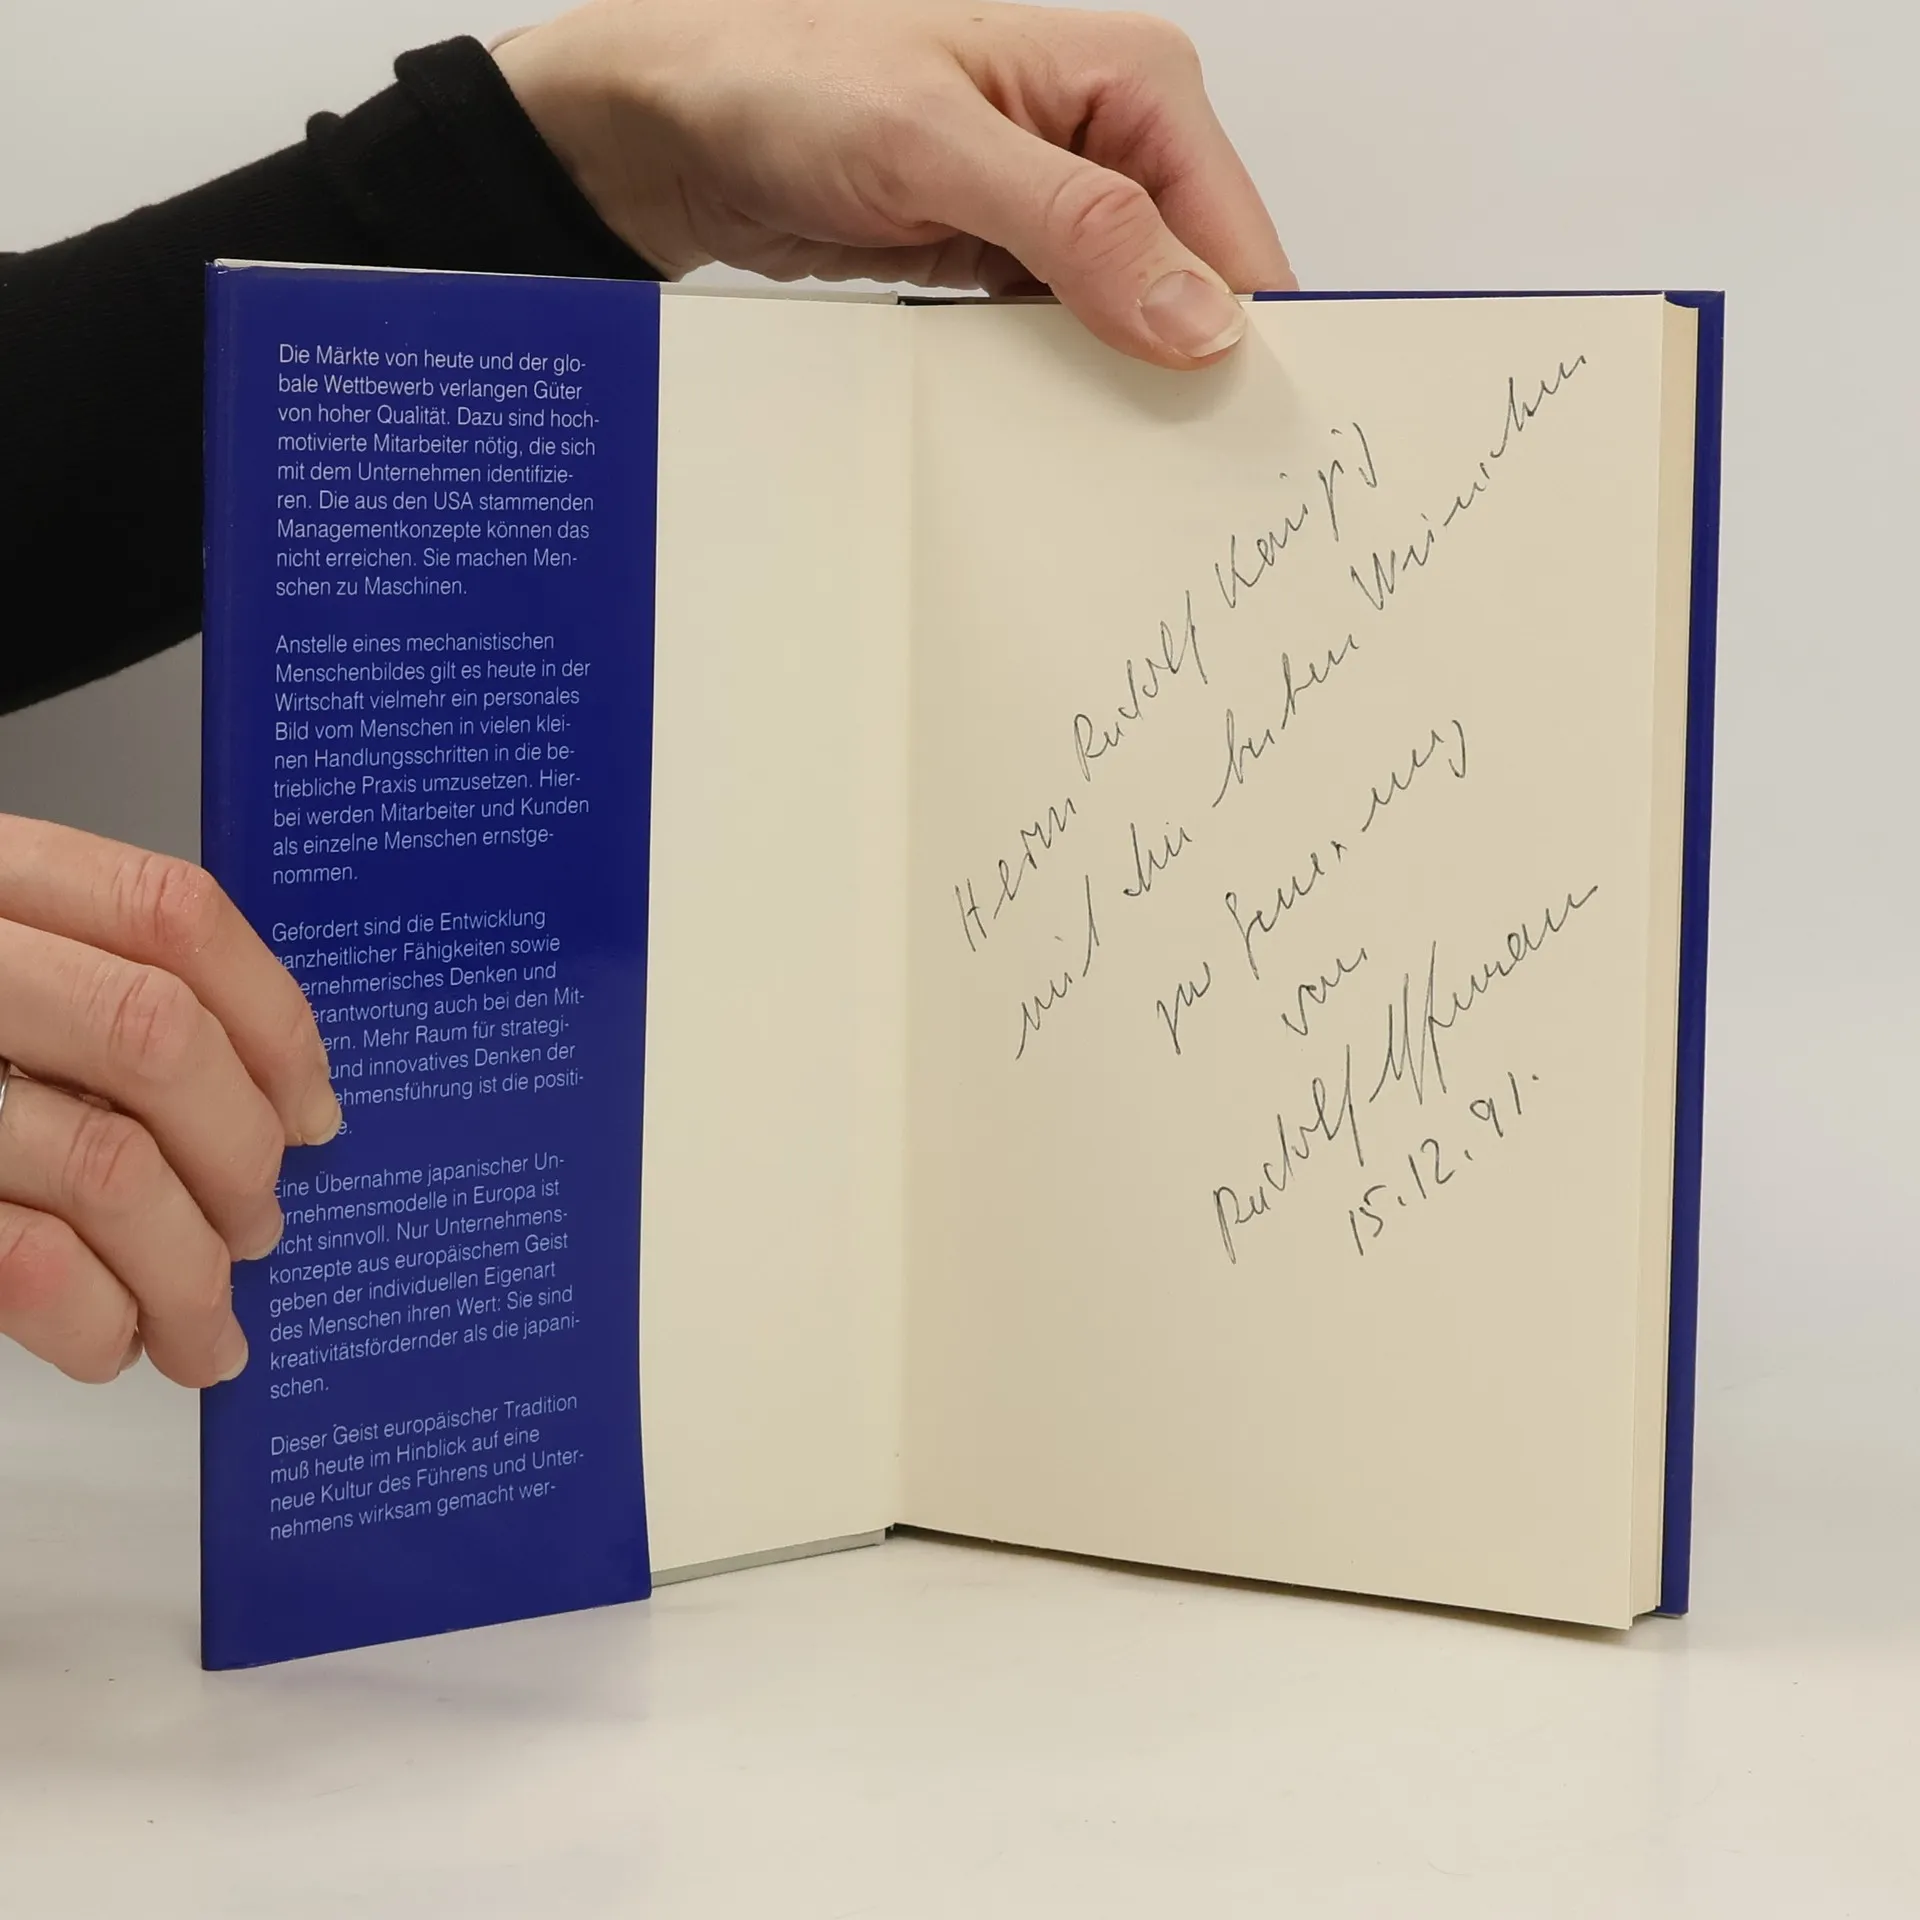 Die Märkte von heute und der glo-
bale Wettbewerb verlangen Güter
von hoher Qualität. Dazu sind hoch-
motivierte Mitarbeiter nötig, die sich
mit dem Unternehmen identifizie-
ren. Die aus den USA stammenden
Managementkonzepte können das
nicht erreichen. Sie machen Men-
schen zu Maschinen.
Anstelle eines mechanistischen
Menschenbildes gilt es heute in der
Wirtschaft vielmehr ein personales
Bild vom Menschen in vielen klei-
nen Handlungsschritten in die be-
triebliche Praxis umzusetzen. Hier-
bei werden Mitarbeiter und Kunden
als einzelne Menschen ernstge-
nommen.
Gefordert sind die Entwicklung
anzheitlicher Fähigkeiten sowie
ernehmerisches Denken und
erantwortung auch bei den Mit-
ern. Mehr Raum für strategi-
und innovatives Denken der
ehmensführung ist die positi-
e.
Eine Übernahme japanischer Un-
ernehmensmodelle in Europa ist
nicht sinnvoll. Nur Unternehmens-
konzepte aus europäischem Geist
geben der individuellen Eigenart
des Menschen ihren Wert: Sie sind
kreativitätsfördernder als die japani-
schen.
Dieser Geist europäischer Tradition
muß heute im Hinblick auf eine
neue Kultur des Führens und Unter-
nehmens wirksam gemacht wer-
Herrn Rudolf
mit den besten Wünschen
zur Genesung
von
Rudolf
15.12.91.